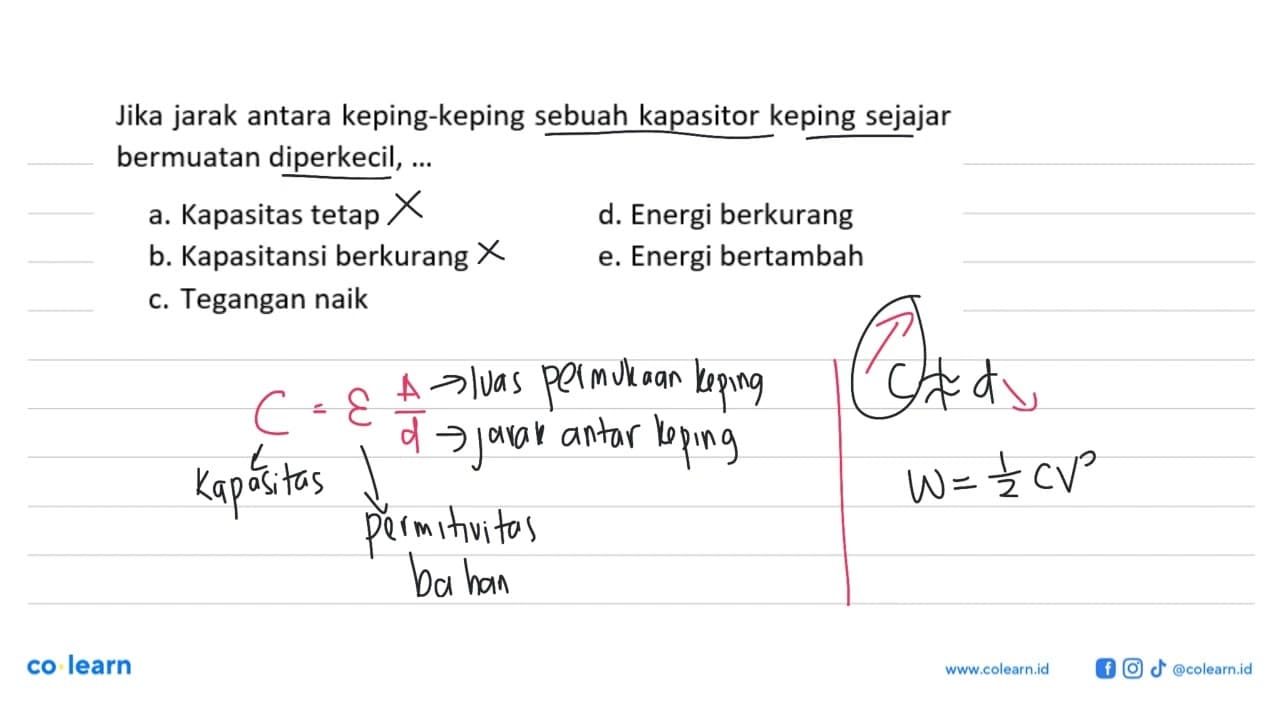 Jika jarak antara keping-keping sebuah kapasitor keping sejajar
bermuatan diperkecil, ...
a. Kapasitas tetap X
b. Kapasitansi berkurang X
c. Tegangan naik
d. Energi berkurang
e. Energi bertambah
C = ε A/d
A → luas permukaan keping
d → jarak antar keping
Kapasitas
permitivitas
bahan
C d
W = 1/2 CV²
co·learn
www.colearn.id
@colearn.id